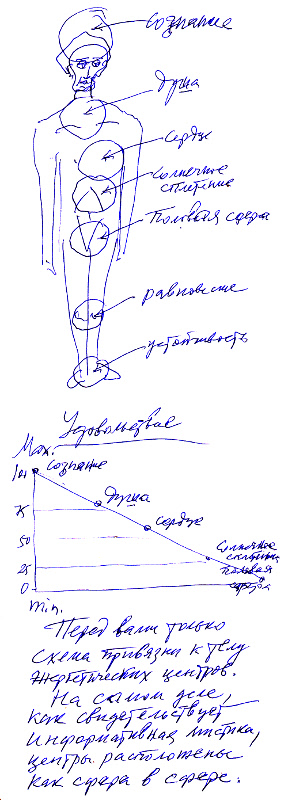 сознание
душа
сердце
солнечное
сплетение
половая сфера
равновесие
устойчивость
Удовольствие
Max.
100
сознание
75
душа
50
сердце
25
солнечное
сплетение
половая
сфера
0
min.
Перед вами только
схема привязки к телу
энергетических центров.
На самом деле,
как свидетельствует
информативная мистика,
центры расположены
как сфера в сфере.